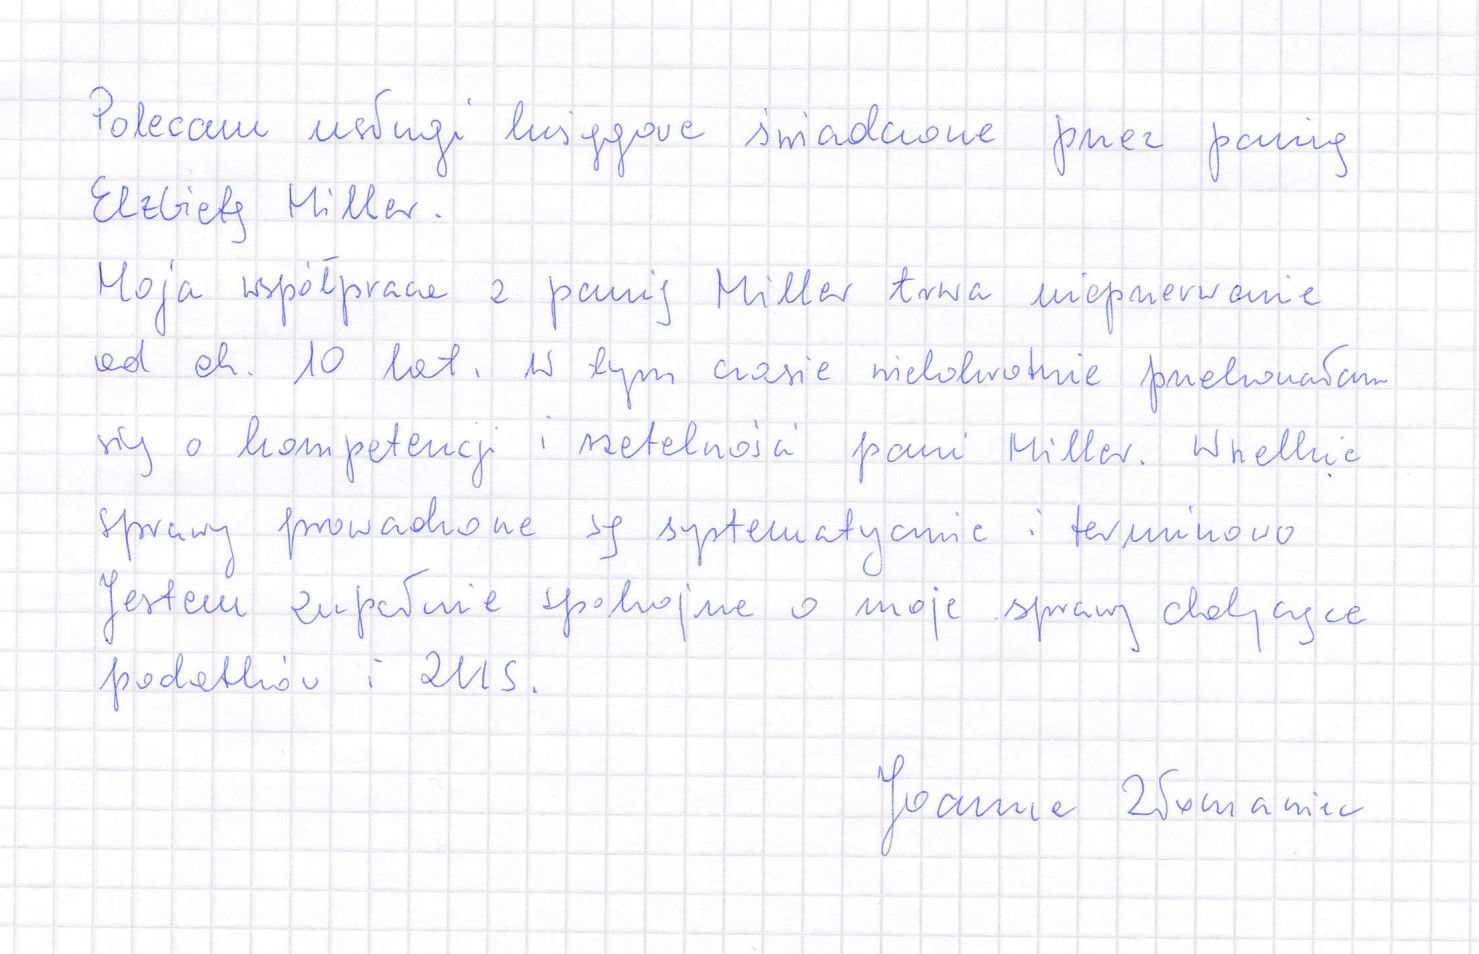 Polecam usługi księgowe świadczone przez panią
Elżbietę Miller.
Moja współpraca z panią Miller trwa nieprzerwanie
od ok. 10 lat. W tym czasie wielokrotnie przekonałam
się o kompetencji i rzetelności pani Miller. Wszelkie
sprawy prowadzone są systematycznie i terminowo
Jestem zupełnie spokojna o moje sprawy dotyczące
podatków i ZUS.
Joanna Złomaniec